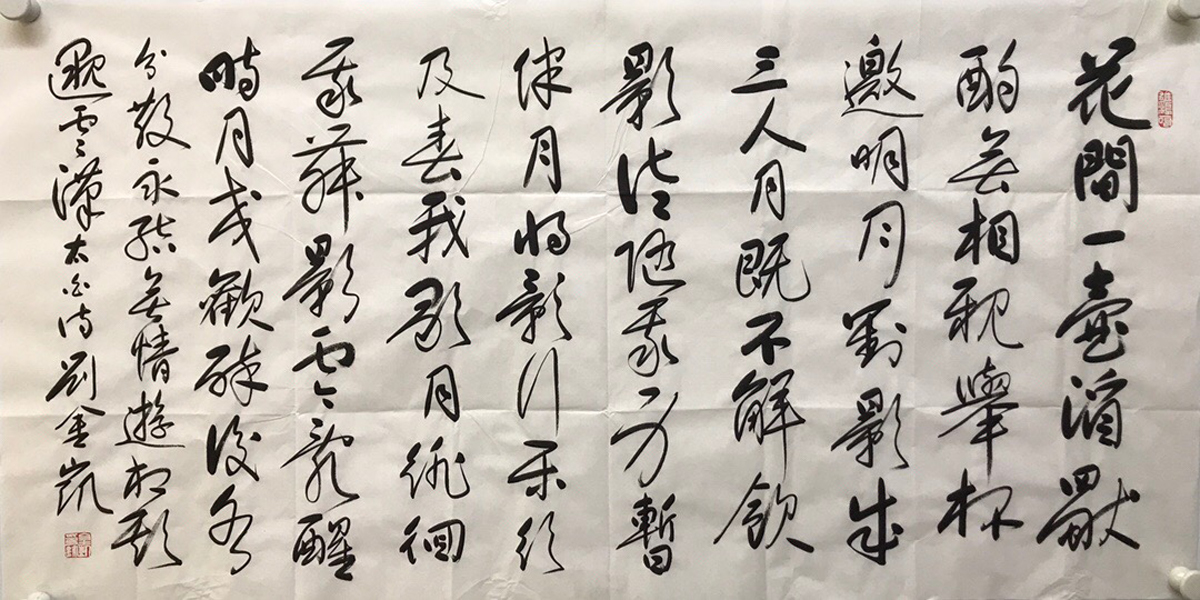 花間一壺酒獨
酌無相親舉杯
邀明月對影成
三人月既不解飲
影徒隨我身暫
伴月將影行樂須
及春我歌月徘徊
我舞影零亂醒
時同交歡醉後各
分散永結無情遊相期
邈雲漢太白詩劉金凱